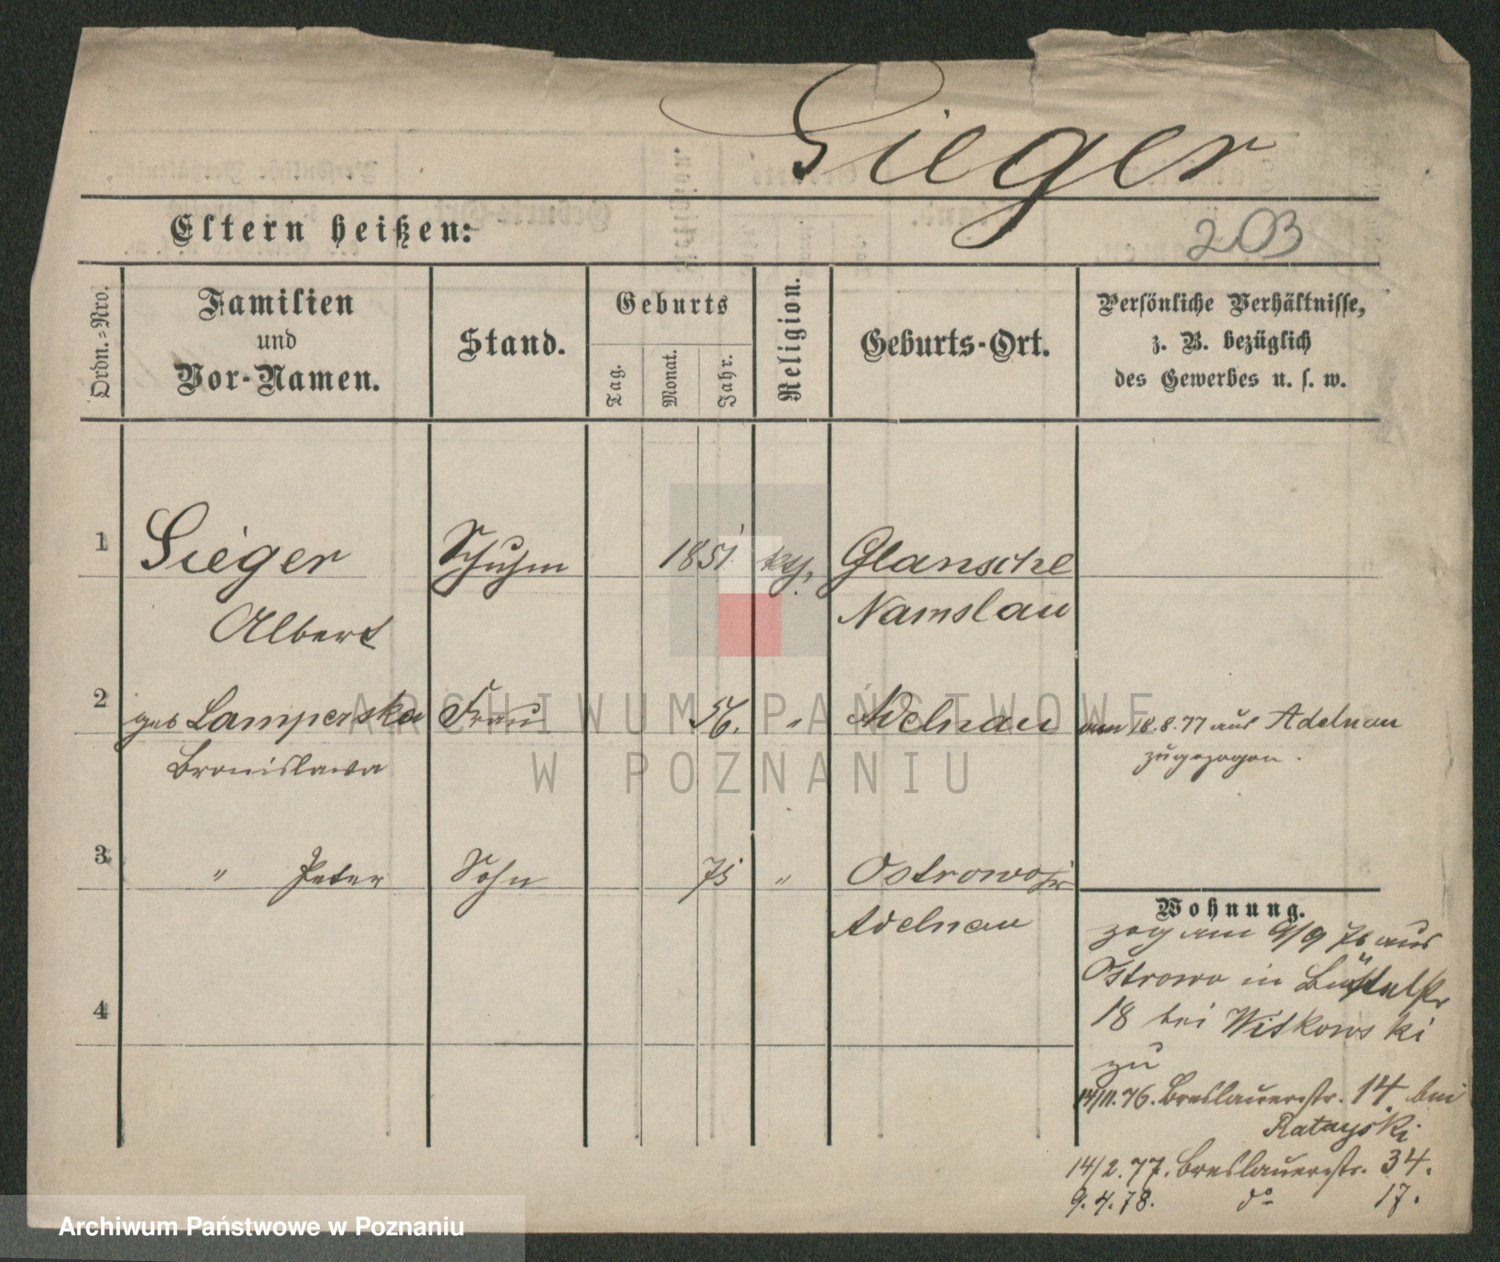 Sieger
Eltern heißen:
203
Ordn.-Nro.
Familien
und
Vor-Namen.
Stand.
Geburts
Tag.
Monat.
Jahr.
Religion.
Geburts-Ort.
Persönliche Verhältnisse,
z. B. bezüglich
des Gewerbes u. s. w.
1 Sieger Schuhm 1851 Glansche
Albert Namslau
2 geb Lamperska Frau 56. " Adelnau am 18.8.77 aus Adelnau
Bronislawa zugezogen.
3 " Peter Sohn 75 " Ostrowo
Adelnau
Wohnung.
zog am 9/9 76 aus
Ostrowo in
18 bei Witkowski
zu
14/11.76. Breslauerstr. 14 bei
Ratayski
14/2.77. Breslauerstr. 34.
9.4.78. do 17.
4
ARCHIWUM PAŃSTWOWE
W POZNANIU
Archiwum Państwowe w Poznaniu